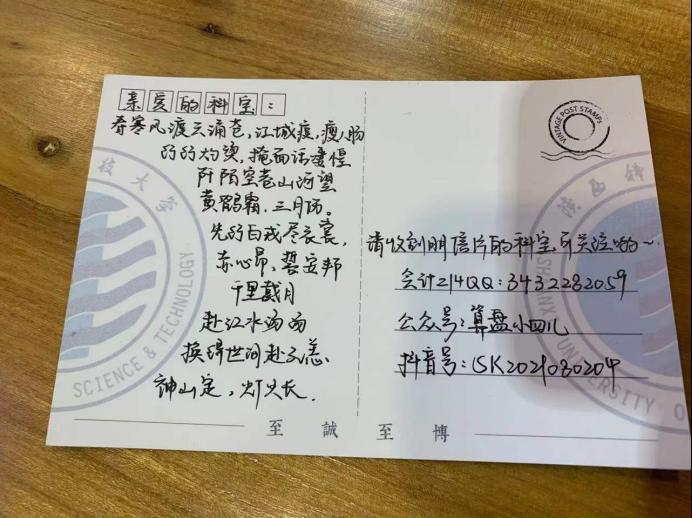 亲爱的科室：
春寒风渡云涌苍，江城疫，瘦人肠
的的灼燙，掩面话凄惶
阡陌空巷山河望
黄鹤霜，三月殇。
先的白戎尽衣裳，
赤心昂，誓安邦
千里戴月
赴江水汤汤
换得世间赴无恙
神山定，灯火长.
请收到明信片的科室可关注哟～
会计214QQ：3432282059
公众号：算盘小四儿
抖音号：SK202103020
科技大学
SCIENCE & TECHNOLOGY
VINTAGE POST STAMPS
陕西科
SHAANXI UNIVERSITY O
至誠至博